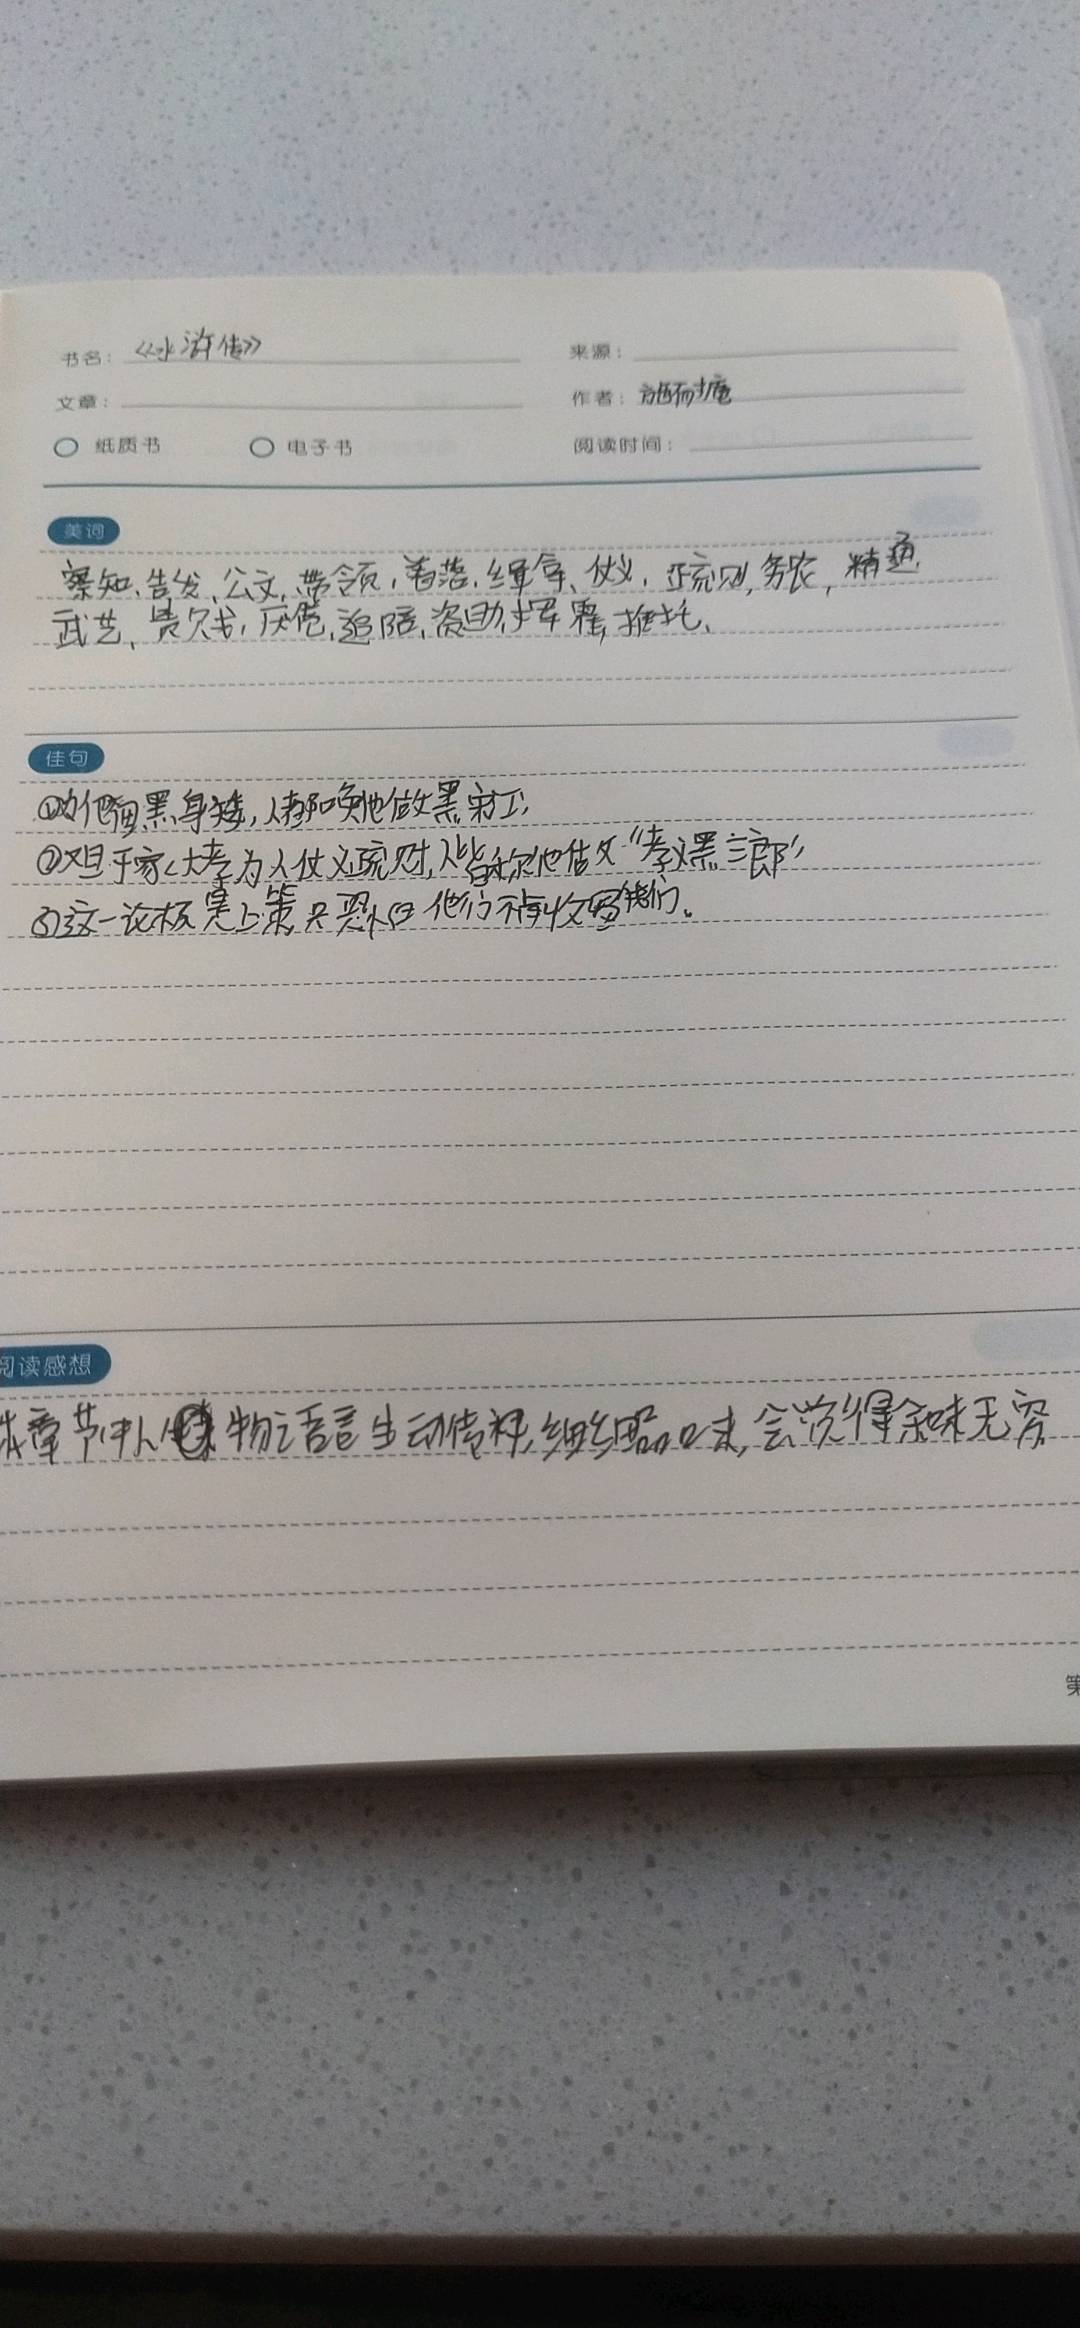 书名：《水浒传》 来源：
文章： 作者：施耐庵
纸质书 电子书 阅读时间：
美词
察知、告发、公文、带领、着落、缉拿、仗义、疏财、务农、精通
武艺、贵贱、厌倦、追陪、资助、挥霍、推托、
佳句
①为他面黑身矮，人都唤他做黑宋江，
②又且于家大孝为人仗义疏财，人皆称他做“孝义黑三郎”
③这一论极是上策，只恐怕他们不肯收留我们。
阅读感想
本章节中人物语言生动传神，细细品味，会觉得余味无穷
第